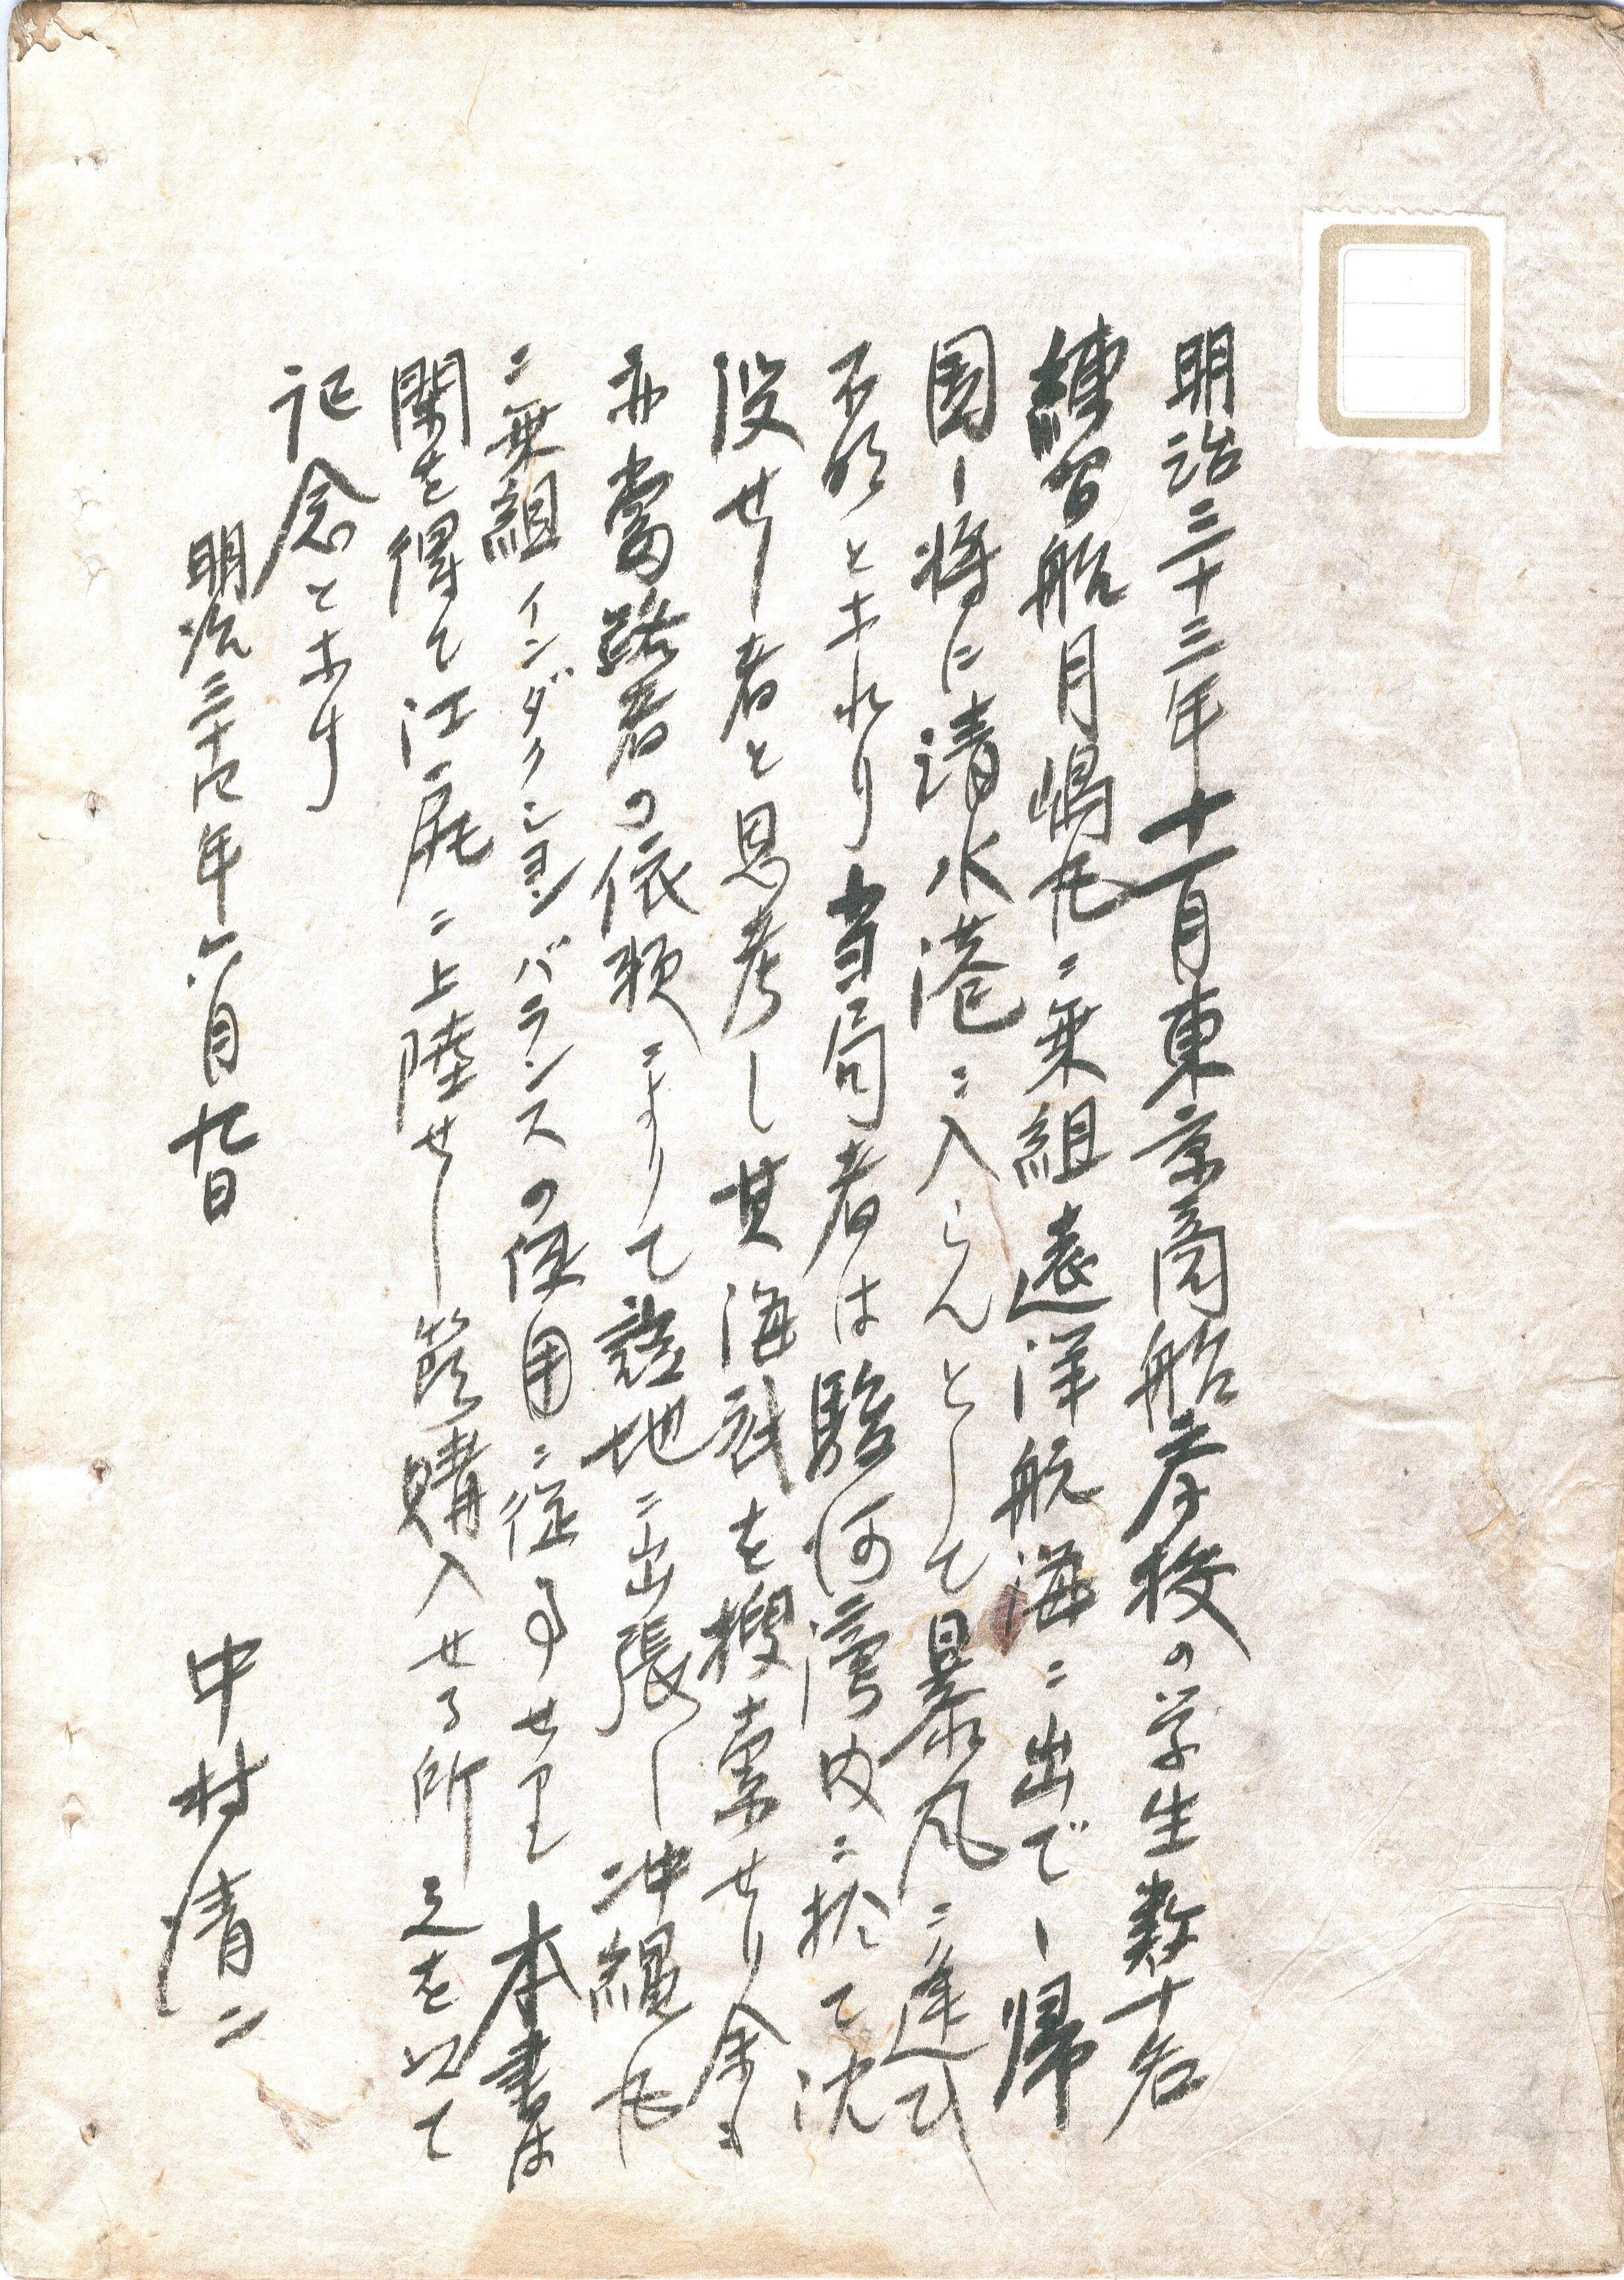 明治三十三年十一月東京商船学校の学生数十名
練習船月嶋丸ニ乗組遠洋航海ニ出で帰
国し将に清水港ニ入らんとして暴風ニ逢ひ
不明となれり当局者は駿河湾内ニ於て沈
没せし者と思考し其海底を捜索せり余も
亦當路者の依頼によりて該地ニ出張し沖縄丸
ニ乗組インダクションバランスの使用ニ従事せり本書は
閑を得て江尻ニ上陸せし節購入せる所之を以て
記念となす
明治三十四年六月廿日
中村清二